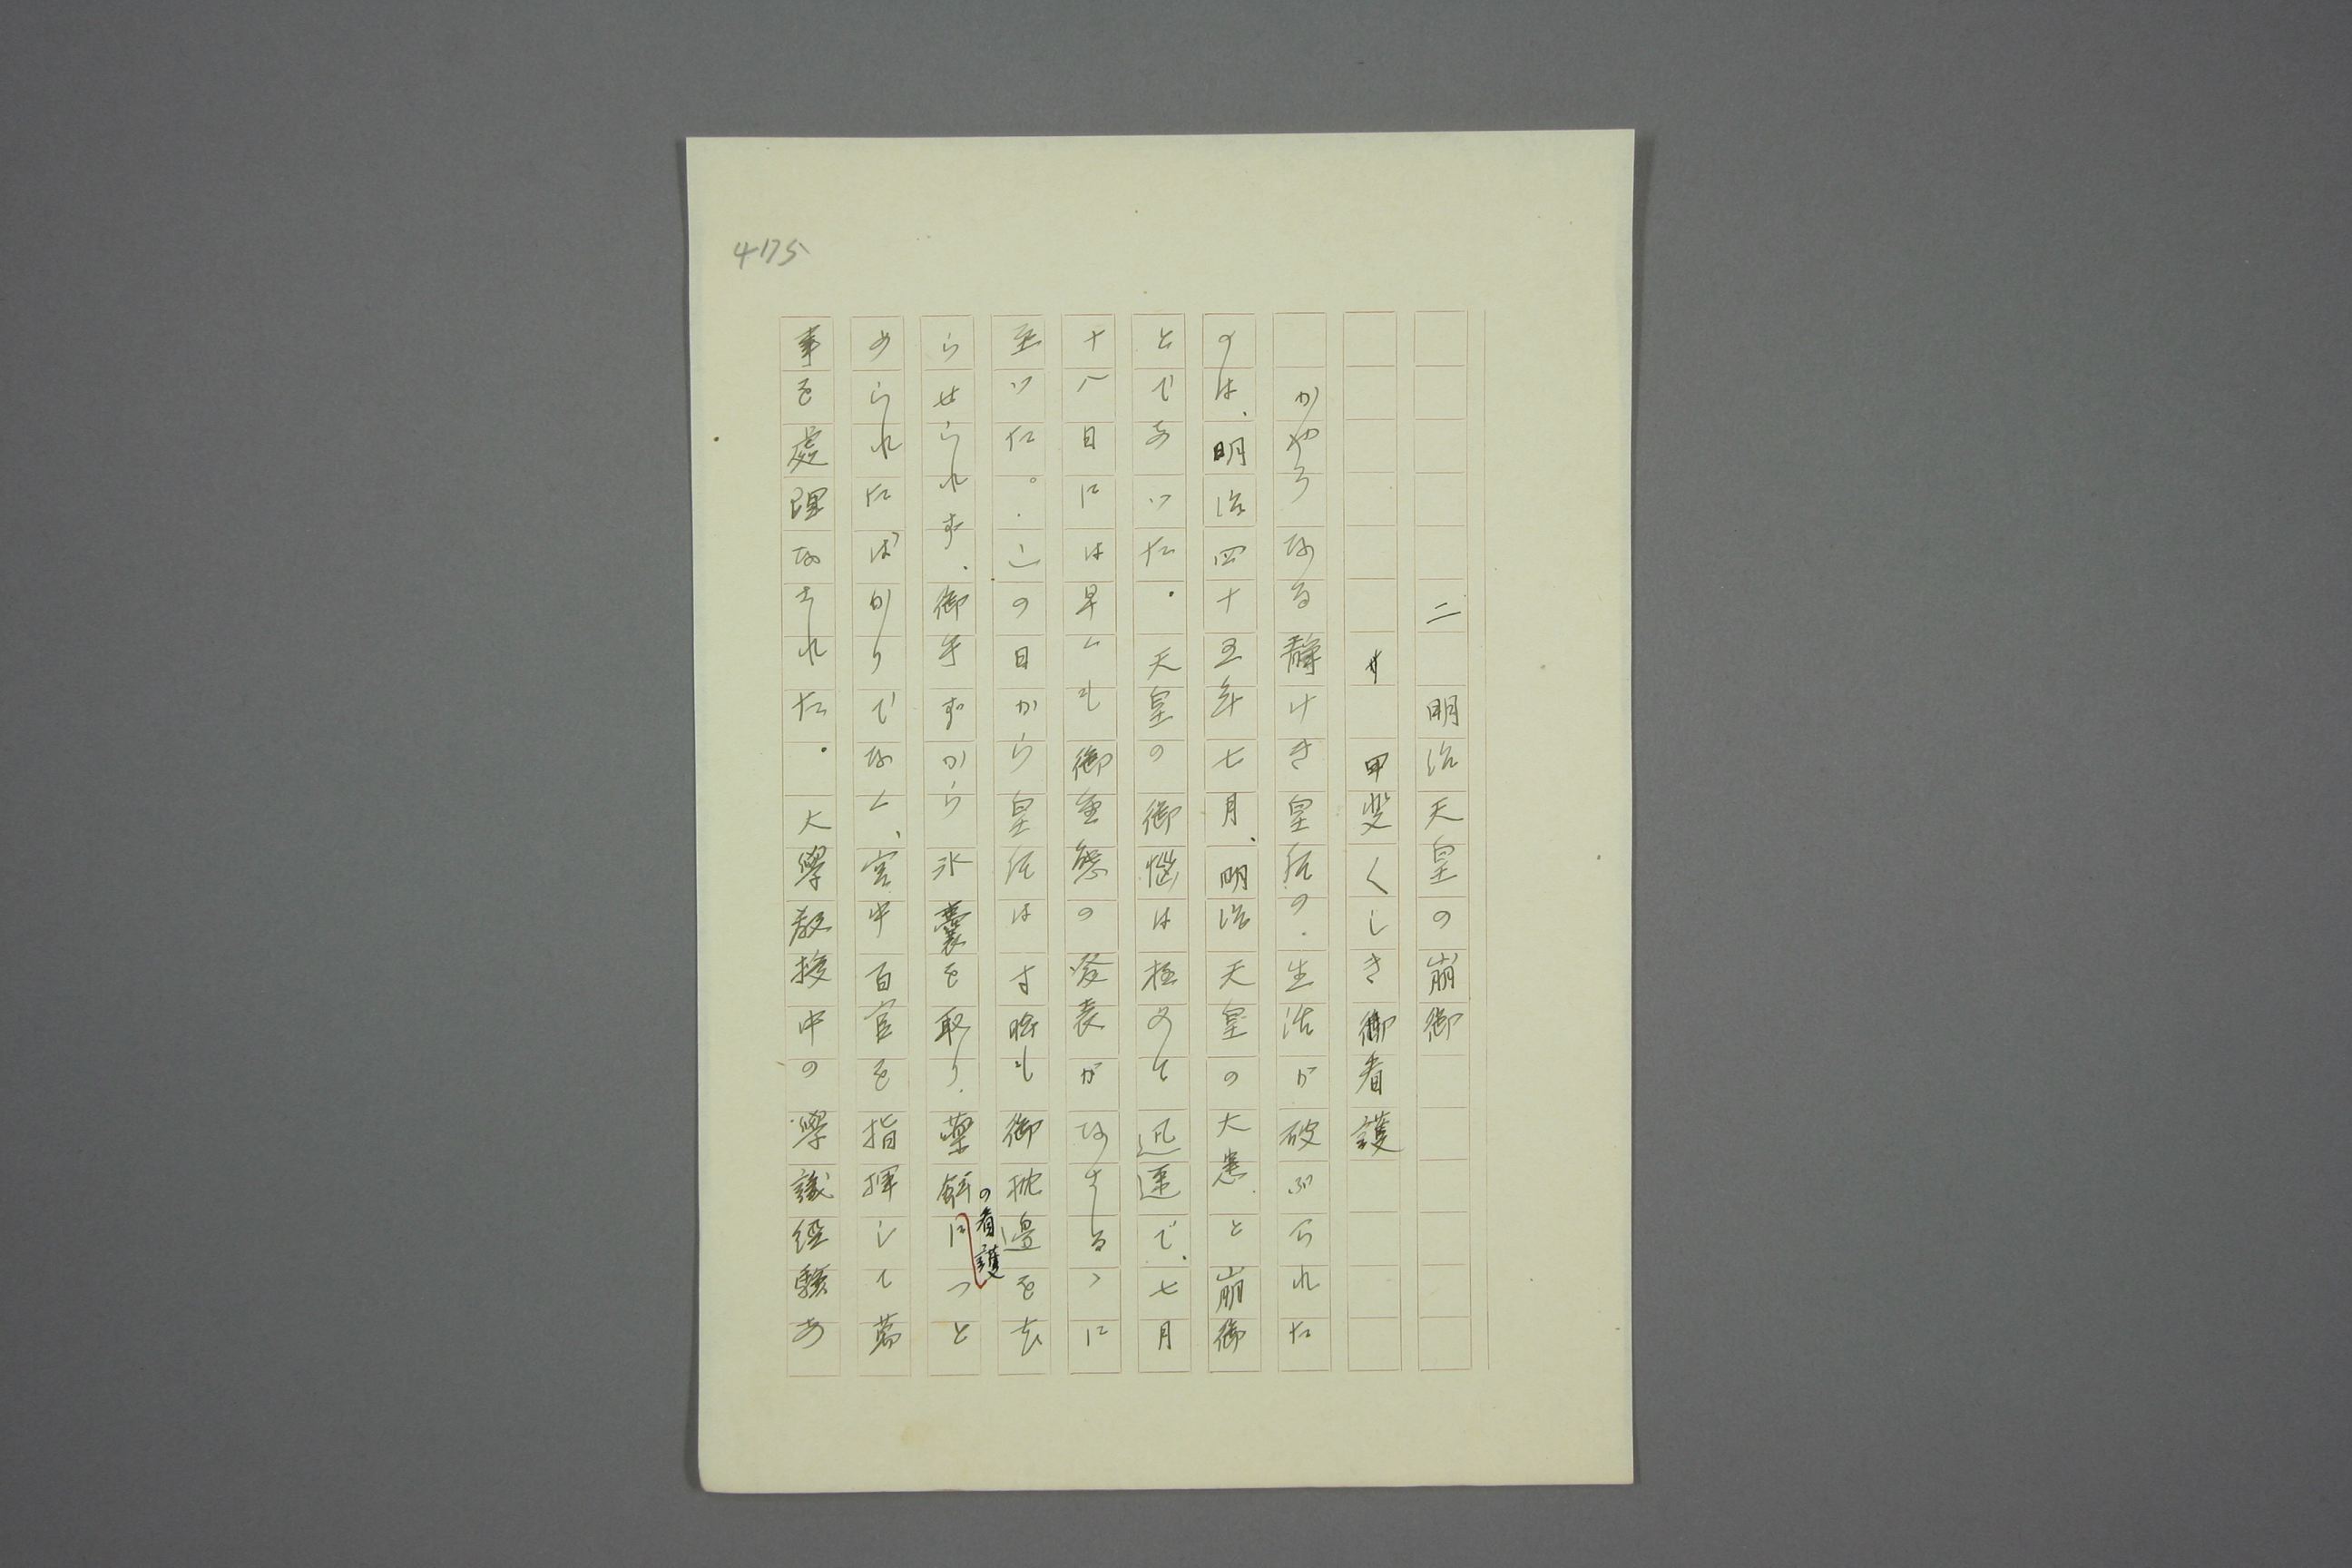 4175
二　明治天皇の崩御
サ　甲斐〱しき御看護
かやうなる静けき皇后の生活が破ぶられた
のは、明治四十五年七月、明治天皇の大患と崩御
とであつた。天皇の御悩は極めて迅速で、七月
十八日には早くも御重態の発表がなさるゝに
至つた。この日から皇后は寸時も御枕邊を去
らせられず、御手ずから氷嚢を取り、薬餌の看護つと
められたばかりでなく、宮中百官を指揮して萬
事を處理なされた。大學教授中の學識経験あ